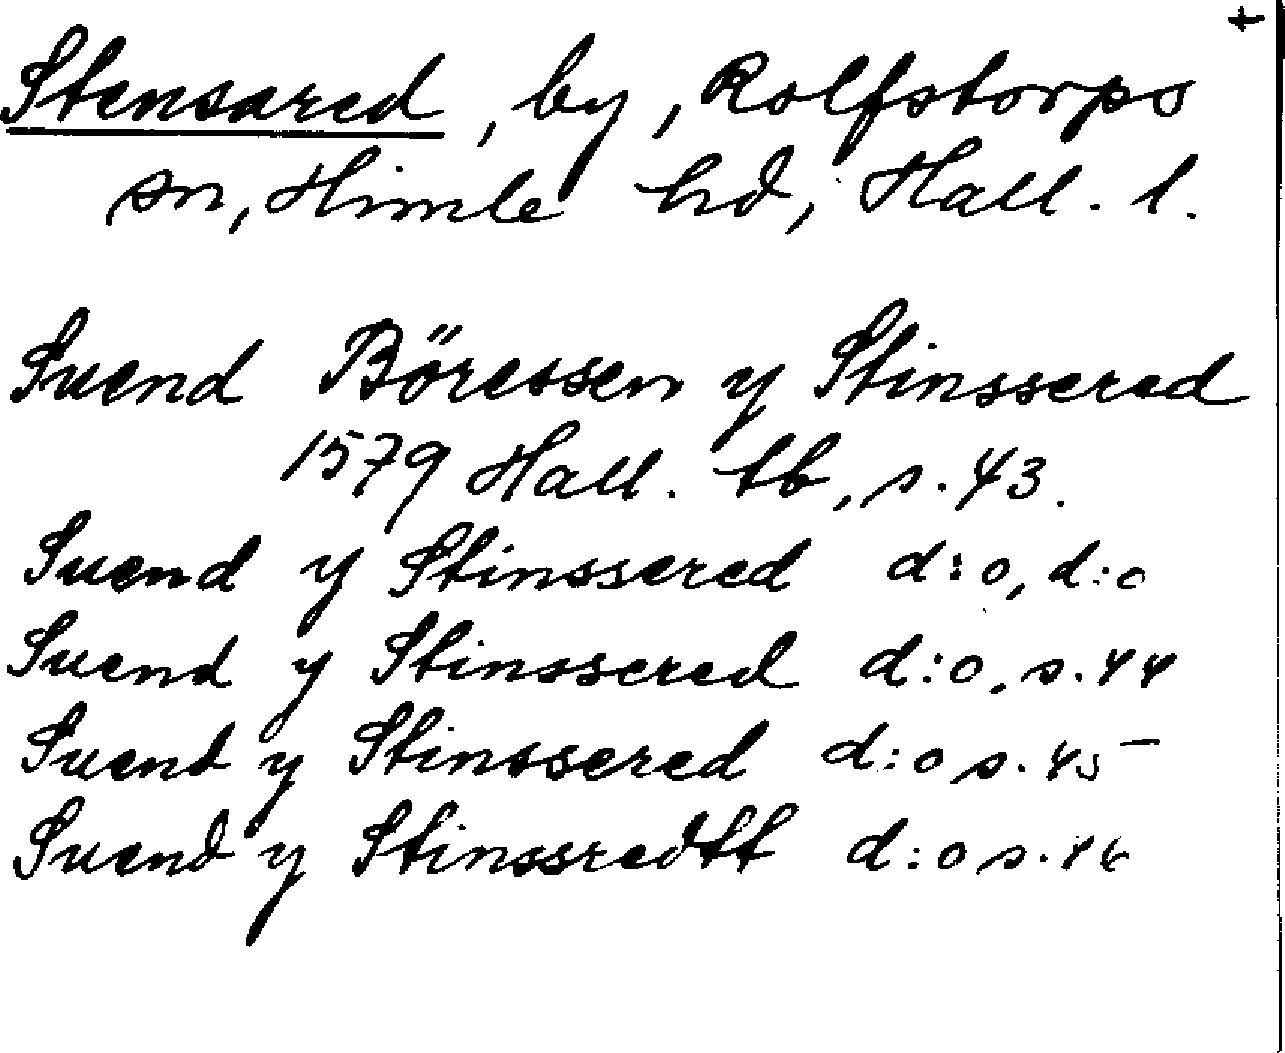 Stensared, by, Rolfstorps
sn, Himle hd, Hall. l.
Suend Böressen y Stinssered
1579 Hall. tb, s. 43.
Suend y Stinssered d:o, d:o
Suend y Stinssered d:o, s. 44
Suend y Stinssered d:o s. 45
Suend y Stinssredtt d:o s. 46